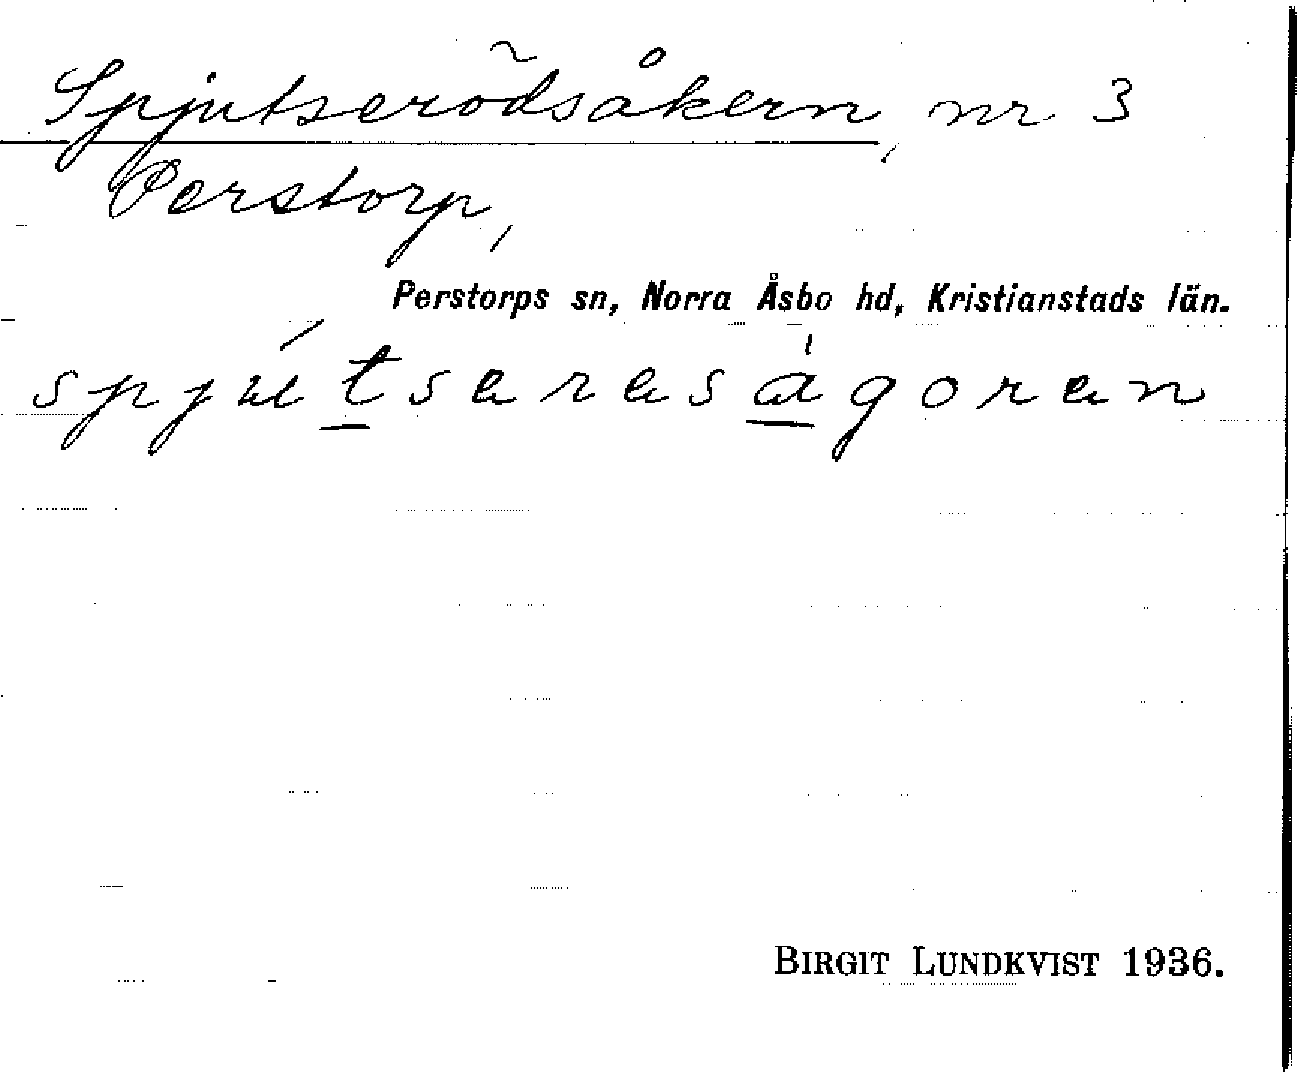 Spjutserödsåkern, nr 3
Perstorp,
Perstorps sn, Norra Åsbo hd, Kristianstads län.
spjútseresàgoren
BIRGIT LUNDKVIST 1936.